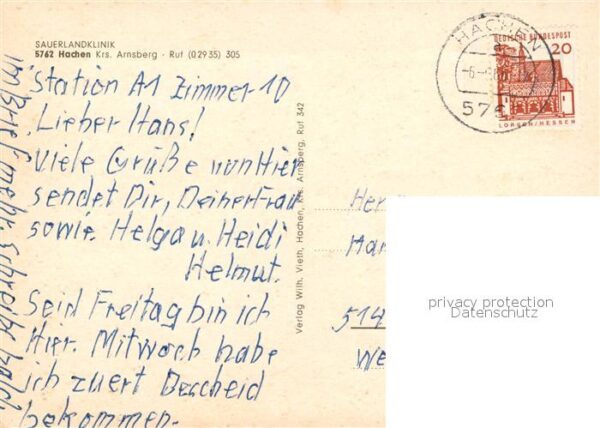 SAUERLANDKLINIK
5762 Hachen Krs. Arnsberg - Ruf (0 29 35) 305
Station A1 Zimmer 10
Lieber Hans!
Viele Grüße von Hier
sendet Dir, Deiner Frau
sowie. Helga u. Heidi
Helmut.
Seid Freitag bin ich
Hier. Mittwoch habe
ich zuert Bescheid
bekommen.
im Brief mehr. schreibe bald
Verlag Wilh. Vieth, Hachen, Krs. Arnsberg, Ruf 342
HACHEN
576
DEUTSCHE BUNDESPOST
20
LORSCH/HESSEN
Her
Han
514
We
privacy protection
Datenschutz